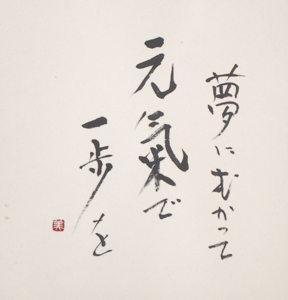 夢にむかって
元氣で
一歩を